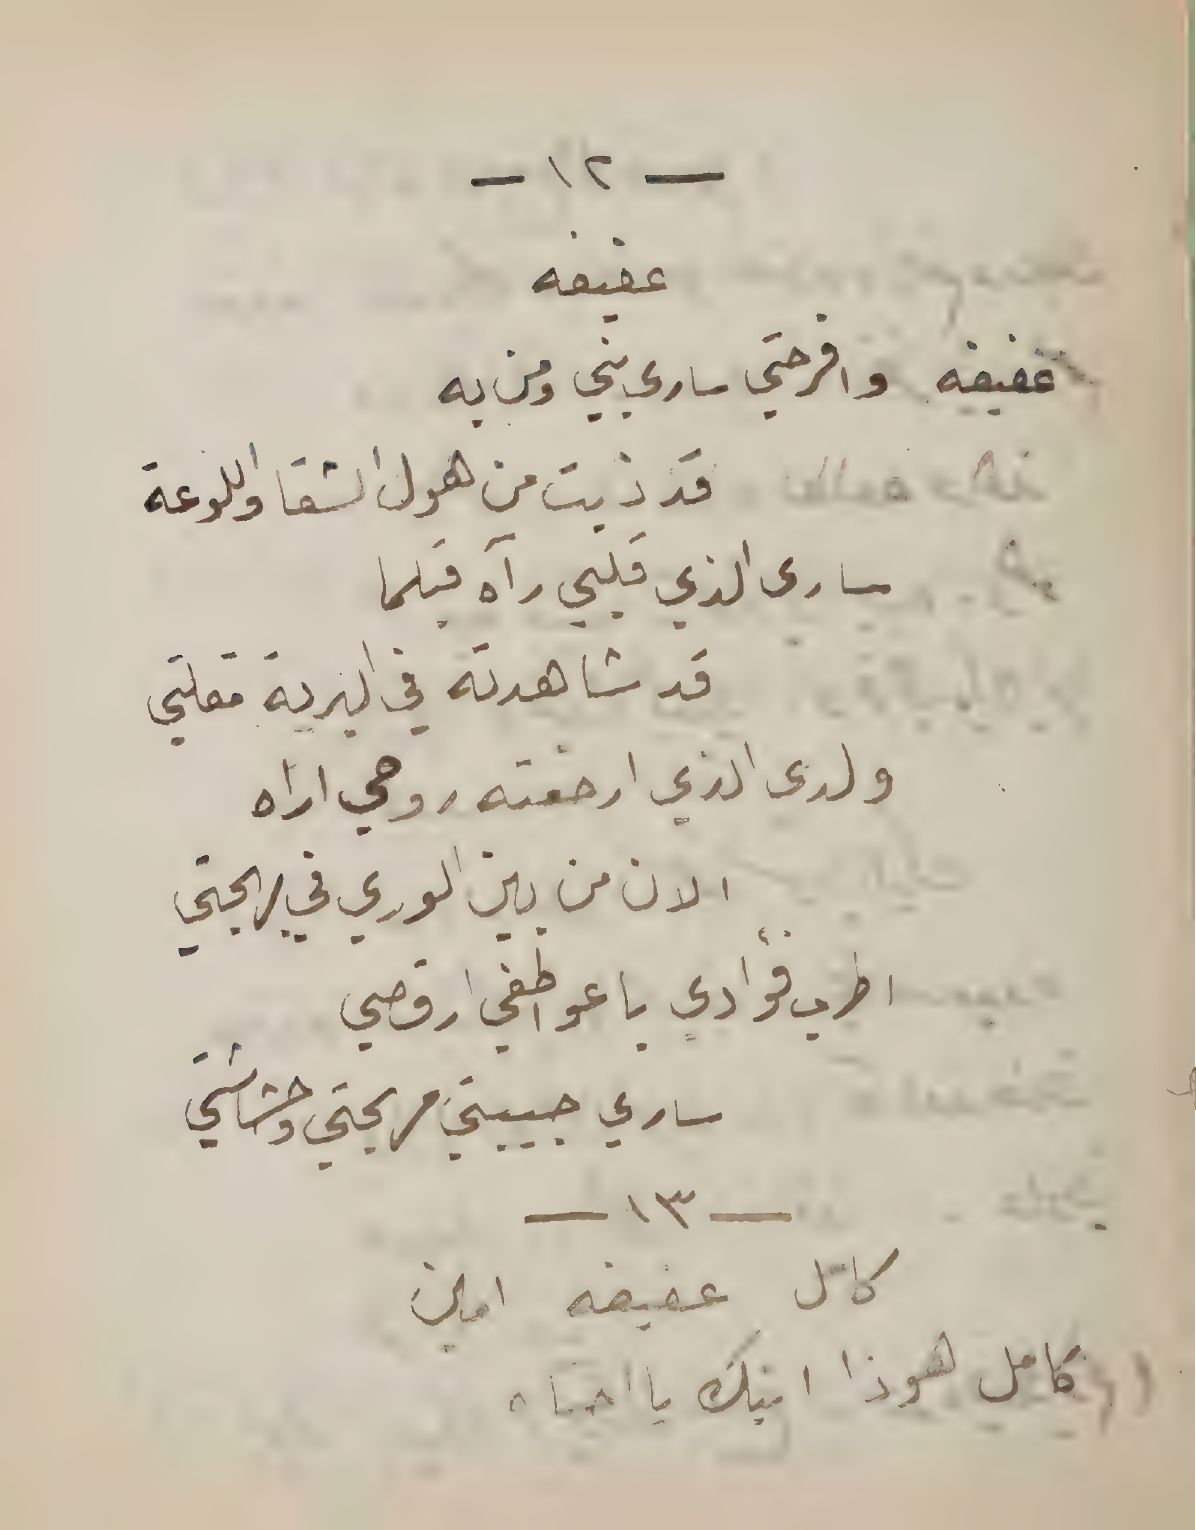 — ١٢ —
عفيفه
عفيفه وافرحتي سارى بني ومن به
قد ذبت من هول الشقا واللوعة
سارى الذي قلبي رآه قبلما
قد شاهدته في البرية مقلتي
ولدى الذي ارضعته روحي اراه
الان من بين الورى في بهجتي
اطرب فؤادي يا عواطفي ارقصي
سارى حبيبتي مهجتي وحشاشتي
— ١٣ —
كامل عفيفه امين
كامل هوذا ابنك يا اماه